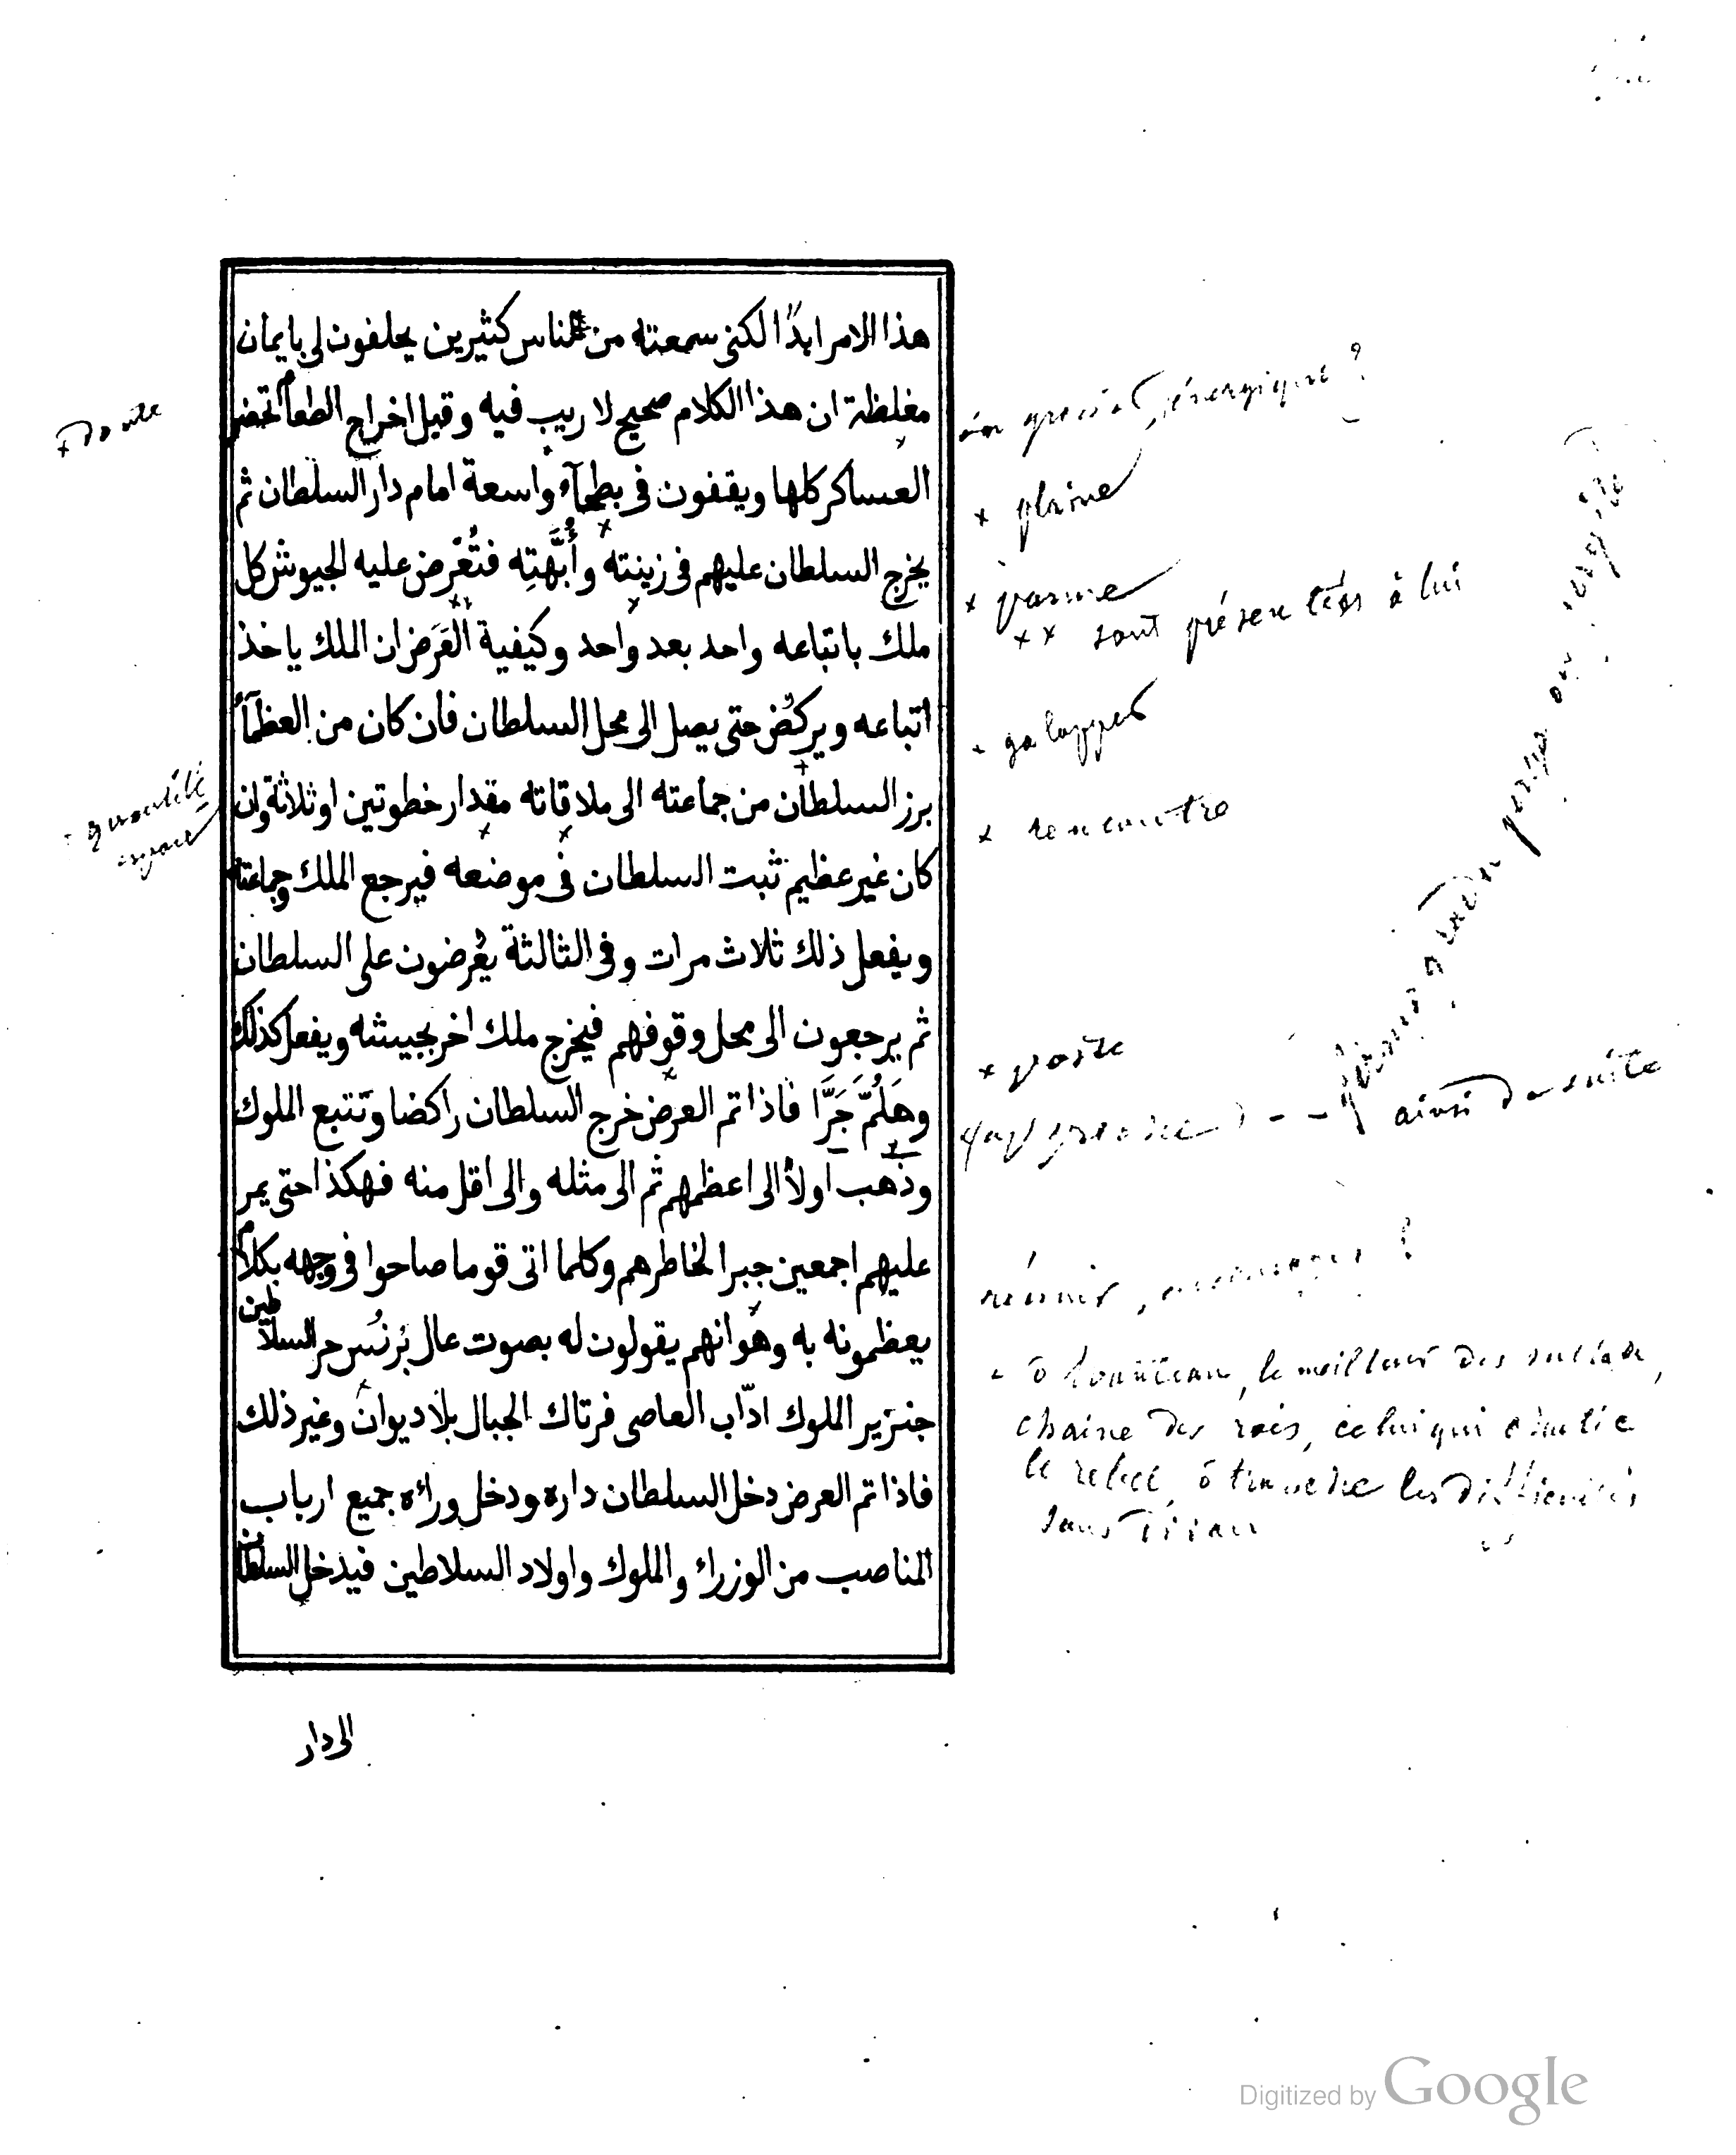 هذا الامر ابدًا لكنى سمعته من الناس كثيرين يحلفون لى بايمان
مغلظة ان هذا الكلام صحيح لا ريب فيه وقبل اخراج الطعام تحضر
العساكر كلها ويقفون فى بطحآء واسعة امام دار السلطان ثم
يخرج السلطان عليهم فى زينته وأُبَّهتِه فتُعْرض عليه الجيوش كل
ملك باتباعه واحد بعد واحد وكيفية العَرَض ان الملك ياخذ
اتباعه ويركض حتى يصل الى محل السلطان فان كان من العظمآء
برز السلطان من جماعته الى ملاقاته مقدار خطوتين او ثلاثة وان
كان غير عظيم ثبت السلطان فى موضعه فيرجع الملك وجماعته
ويفعل ذلك ثلاث مرات وفى الثالثة يُعْرضون على السلطان
ثم يرجعون الى محل وقوفهم فيخرج ملك اخر بجيشه ويفعل كذلك
وهَلُمَّ جَرًّا فاذا تم العرض خرج السلطان راكضا وتتبع الملوك
وذهب اولاً الى اعظمهم ثم الى مثله والى اقل منه فهكذا حتى يمر
عليهم اجمعين جبرا لخاطرهم وكلما اتى قوما صاحوا فى وجهه بكلام
يعظمونه به وهو انهم يقولون له بصوت عال بُرنُس حر السلاطين
جنزير الملوك ادّاب العاصى فرتاك الجبال بلا ديوان وغير ذلك
فاذا تم العرض دخل السلطان داره ودخل وراءه جميع ارباب
المناصب من الوزراء والملوك واولاد السلاطين فيدخل السلطان
الى دار
+ doute
énergique ?
x plaine
x parure
x x sont présentées à lui
galopper
x rencontre
quantité
x poste
ainsi de suite
réunir
le meilleur des
chaine des rois, celui qui
le rebel, ô
sans divan
Digitized by Google